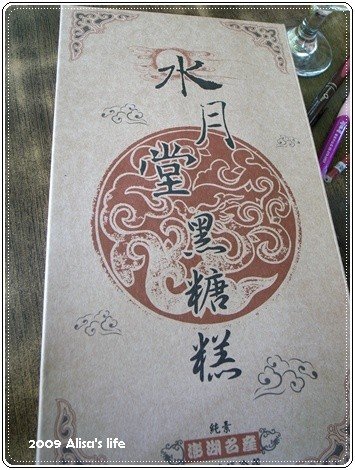 水月堂黑糖糕
純素
澎湖名產
2009 Alisa's life